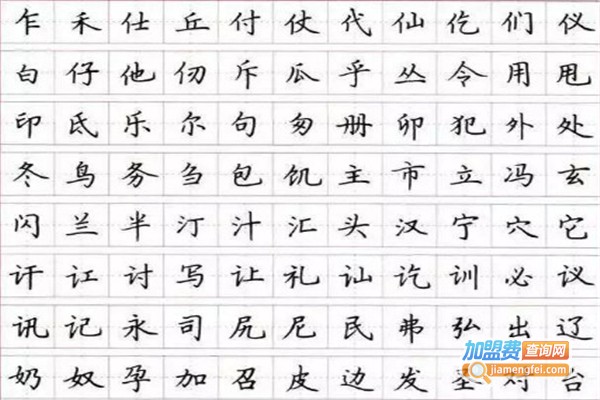 乍 禾 仕 丘 付 仗 代 仙 仡 们 仪
白 仔 他 仞 斥 瓜 乎 丛 令 用 甩
印 氐 乐 尔 句 匆 册 卯 犯 外 处
冬 鸟 务 刍 包 饥 主 市 立 冯 玄
闪 兰 半 汀 汁 汇 头 汉 宁 穴 它
讦 讧 讨 写 让 礼 讪 讫 训 必 议
讯 记 永 司 尻 尼 民 弗 弘 出 辽
奶 奴 孕 加 召 皮 边 发 圣 对 台
加盟费查询网
jiamengfei.com